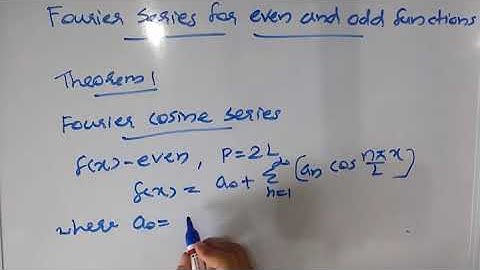 Fourier series for even and odd functions
Theorem 1
Fourier cosine series
f(x) - even, P = 2L
f(x) = a0 + ∞∑n=1 (an cos nπx/L)
where a0 =